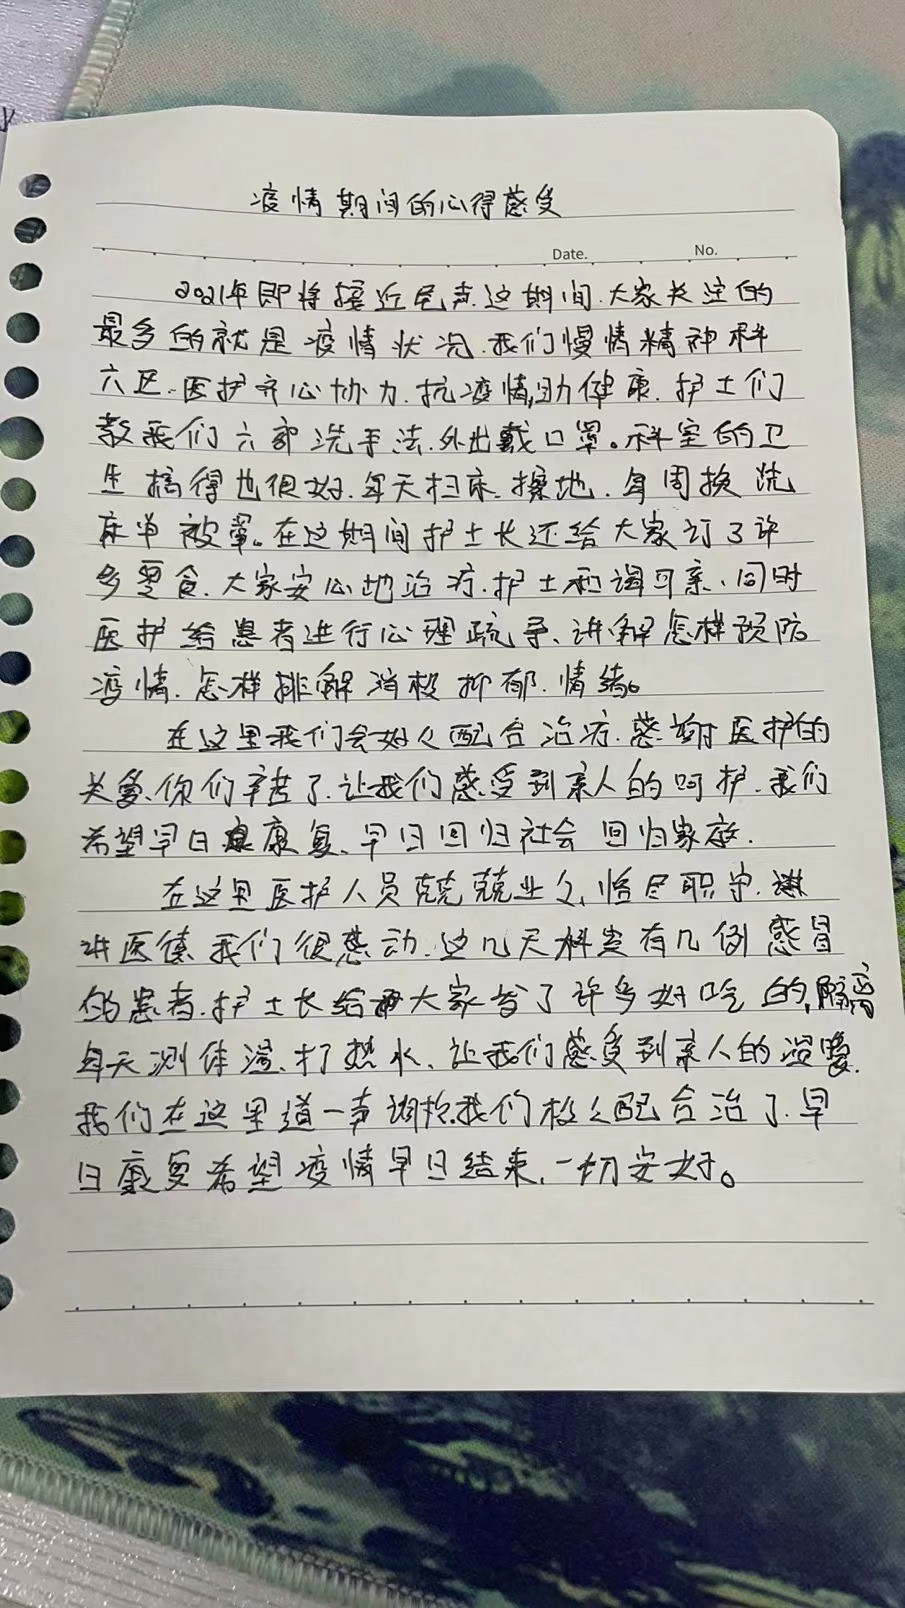 疫情期间的心得感受
Date. No.
2021年即将接近尾声.这期间.大家关注的
最多的就是疫情状况.我们慢情精神科
六区.医护齐心协力.抗疫情,助健康.护士们
教我们六部洗手法.外出戴口罩。科室的卫
生搞得也很好.每天扫床.擦地.每周换洗
床单被罩。在这期间护士长还给大家订了许
多零食.大家安心地治疗.护士和谐可亲、同时
医护给患者进行心理疏导、讲解怎样预防
疫情.怎样排解消极抑郁.情绪。
在这里我们会好好配合治疗.感谢医护的
关爱、你们辛苦了.让我们感受到亲人的呵护.我们
希望早日康复、早日回归社会 回归家庭.
在这里医护人员兢兢业业,恪尽职守.
讲医德.我们很感动.这几天科里有几例感冒
的患者.护士长给大家省了许多好吃的,隔离
每天测体温、打热水、让我们感受到亲人的温暖.
我们在这里道一声谢谢.我们极极配合治了.早
日康复希望疫情早日结束、一切安好。